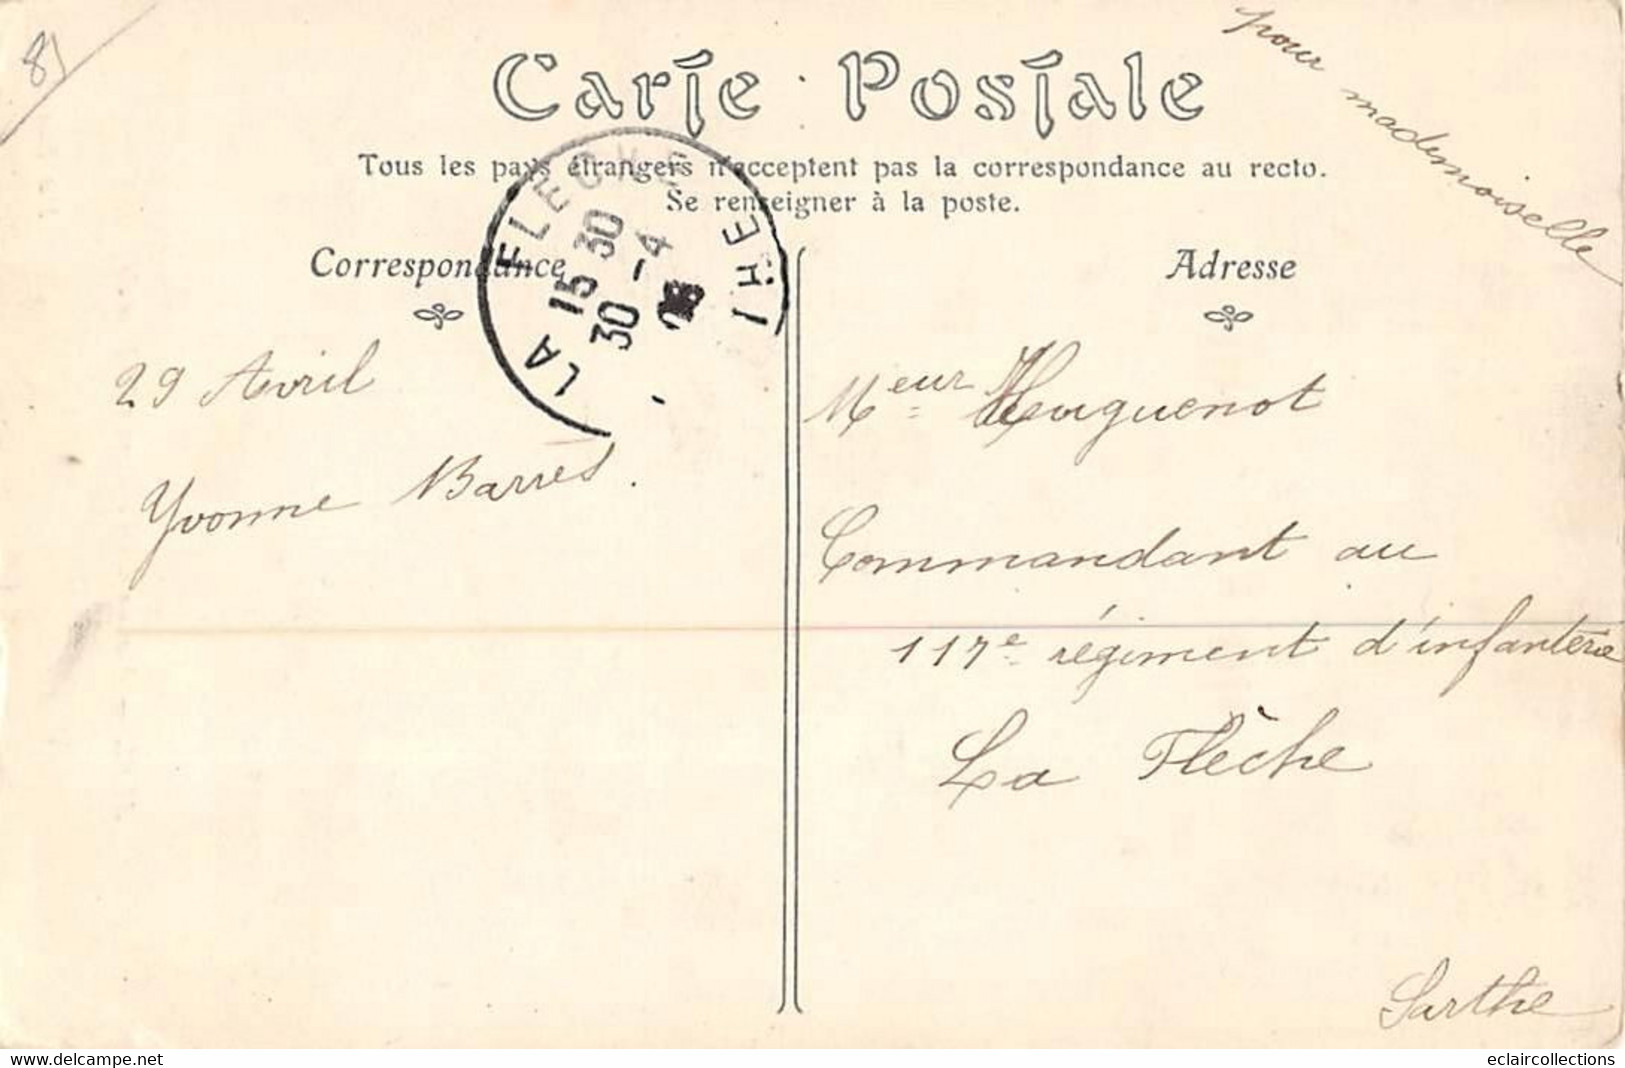 81
pour mademoiselle
Carte Postale
Tous les pays étrangers n'acceptent pas la correspondance au recto.
Se renseigner à la poste.
Correspondance
Adresse
LA FLECHE
15 30
30 -4
THE
29 Avril
Yvonne Barres.
Meur Huguenot
Commandant au
117e régiment d'infanterie
La Flèche
Sarthe
eclaircollections